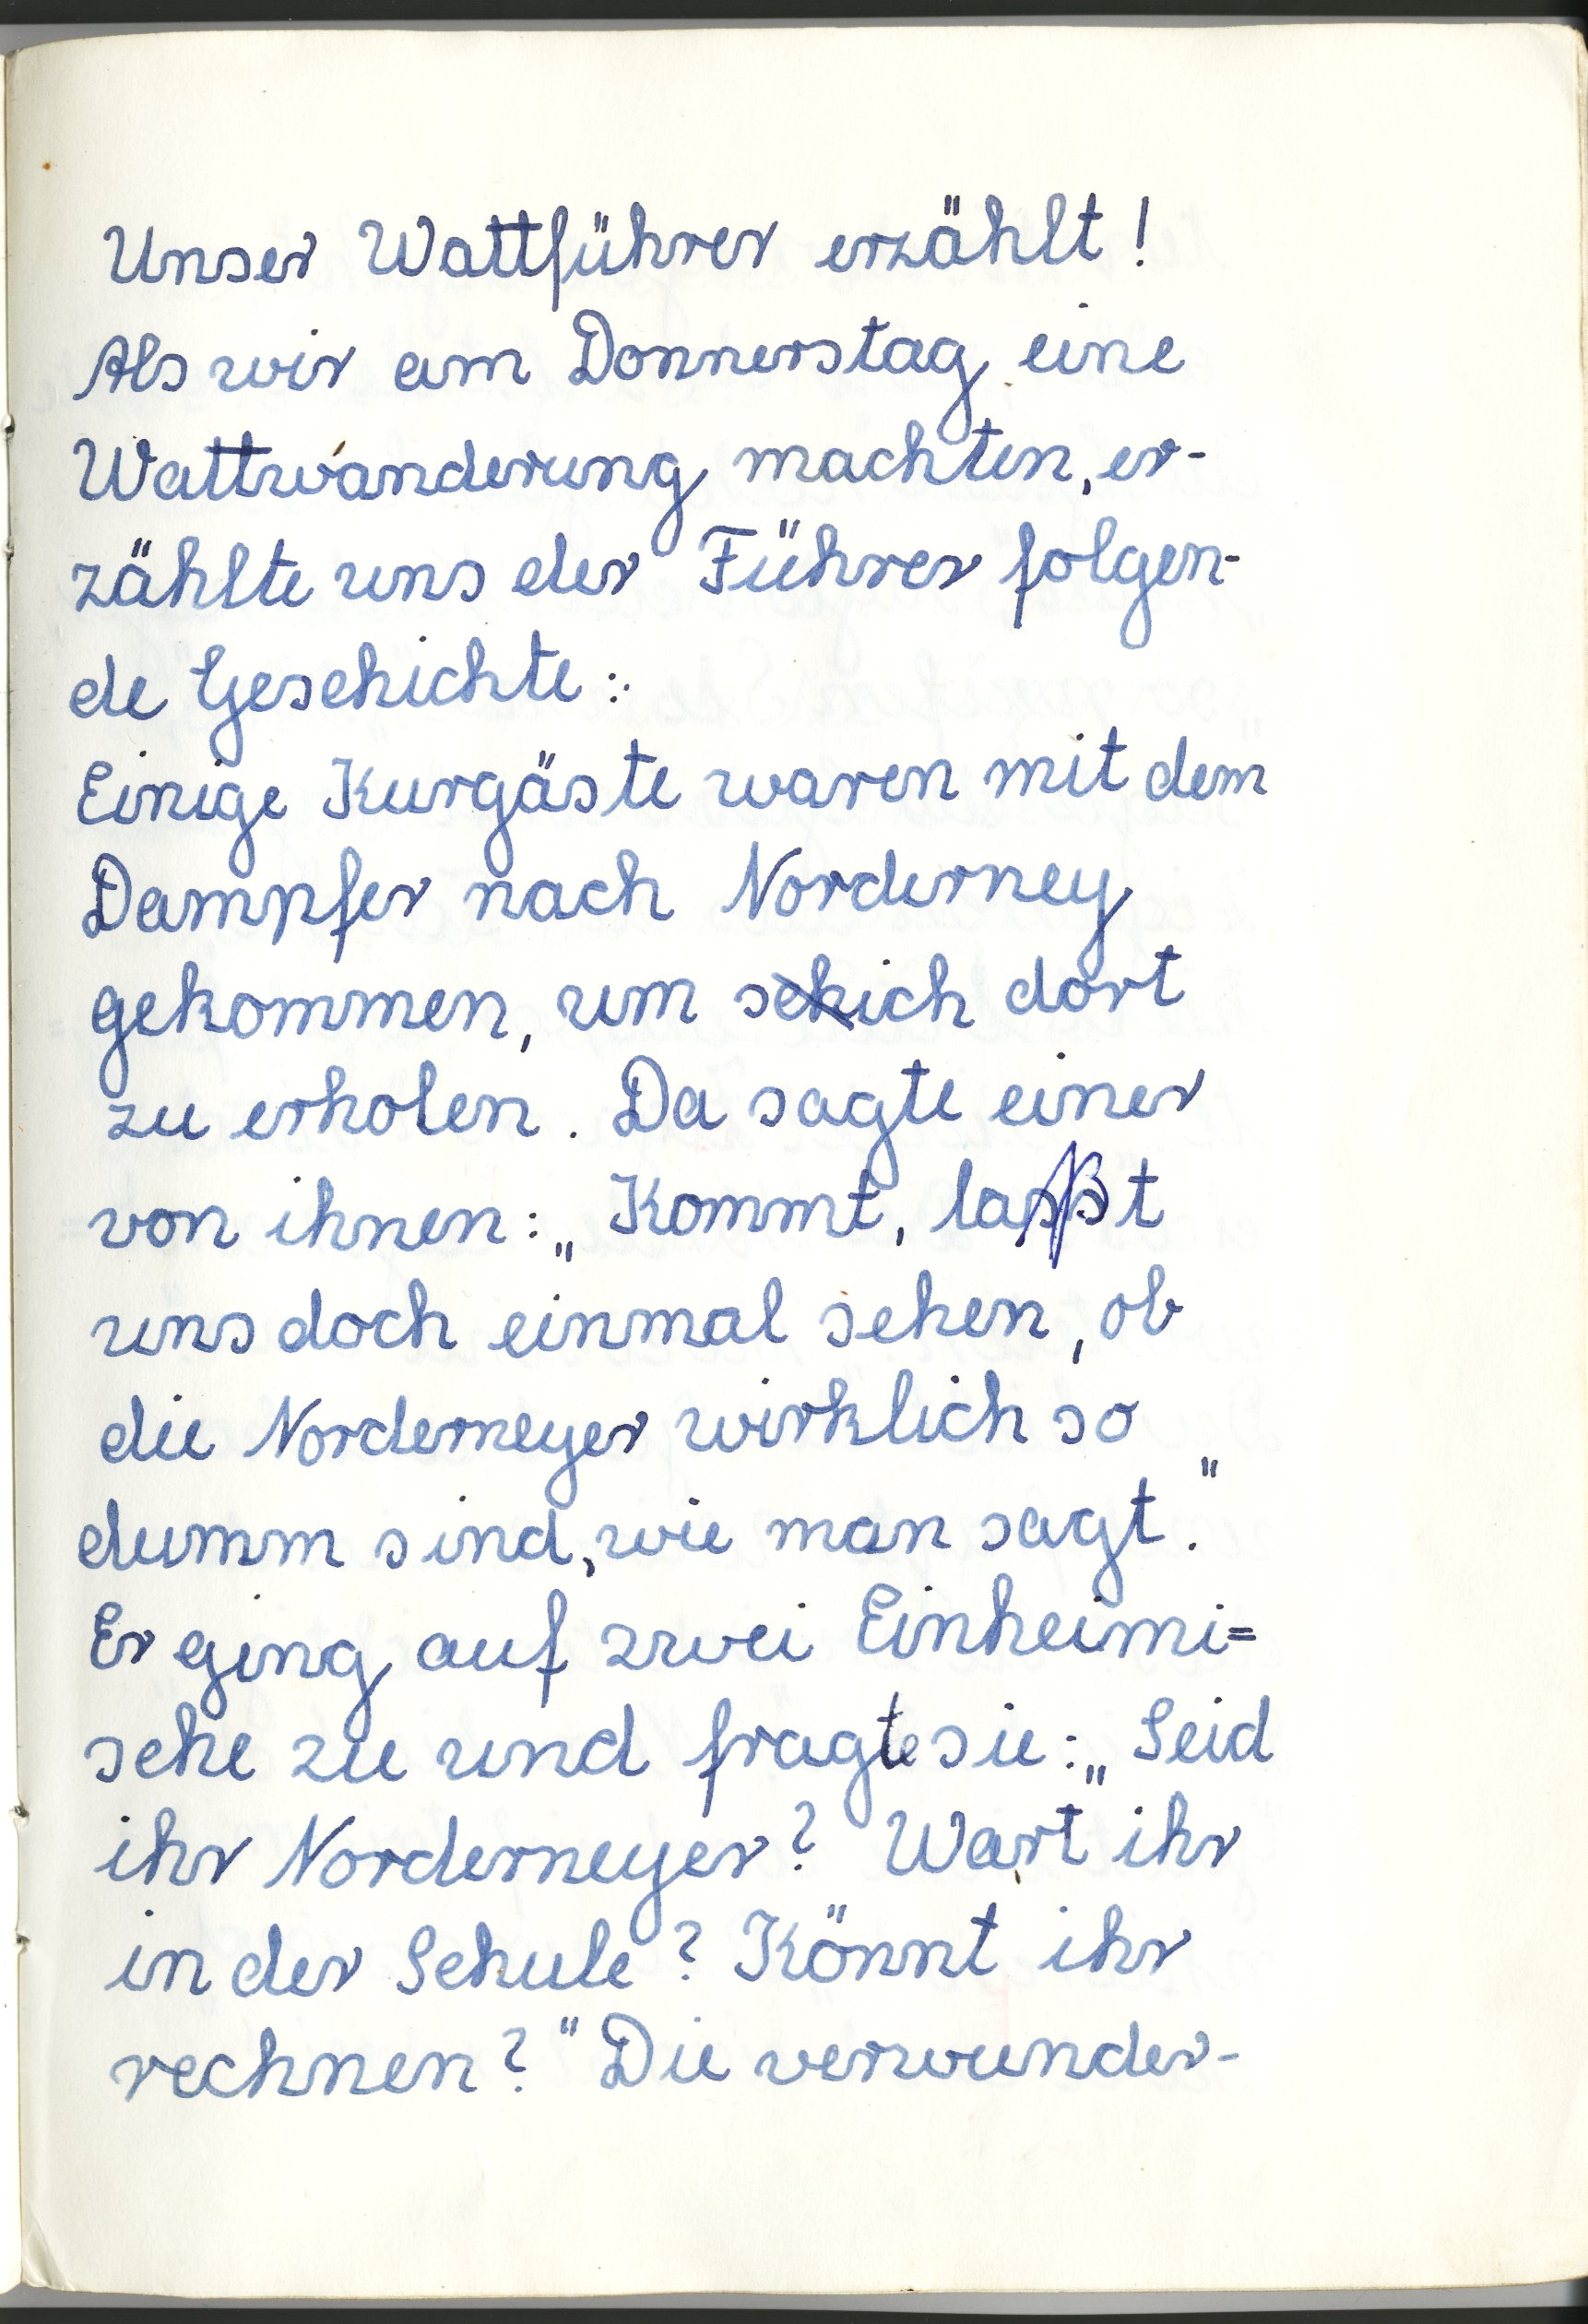 Unser Wattführer erzählt!
Als wir am Donnerstag eine
Wattwanderung machten, er-
zählte uns der Führer folgen-
de Geschichte:
Einige Kurgäste waren mit dem
Dampfer nach Norderney
gekommen, um sich dort
zu erholen. Da sagte einer
von ihnen: „Kommt, laßt
uns doch einmal sehen, ob
die Norderneyer wirklich so
dumm sind, wie man sagt."
Er ging auf zwei Einheimi=
sche zu und fragte sie: „Seid
ihr Norderneyer? Wart ihr
in der Schule? Könnt ihr
rechnen?" Die verwunder-